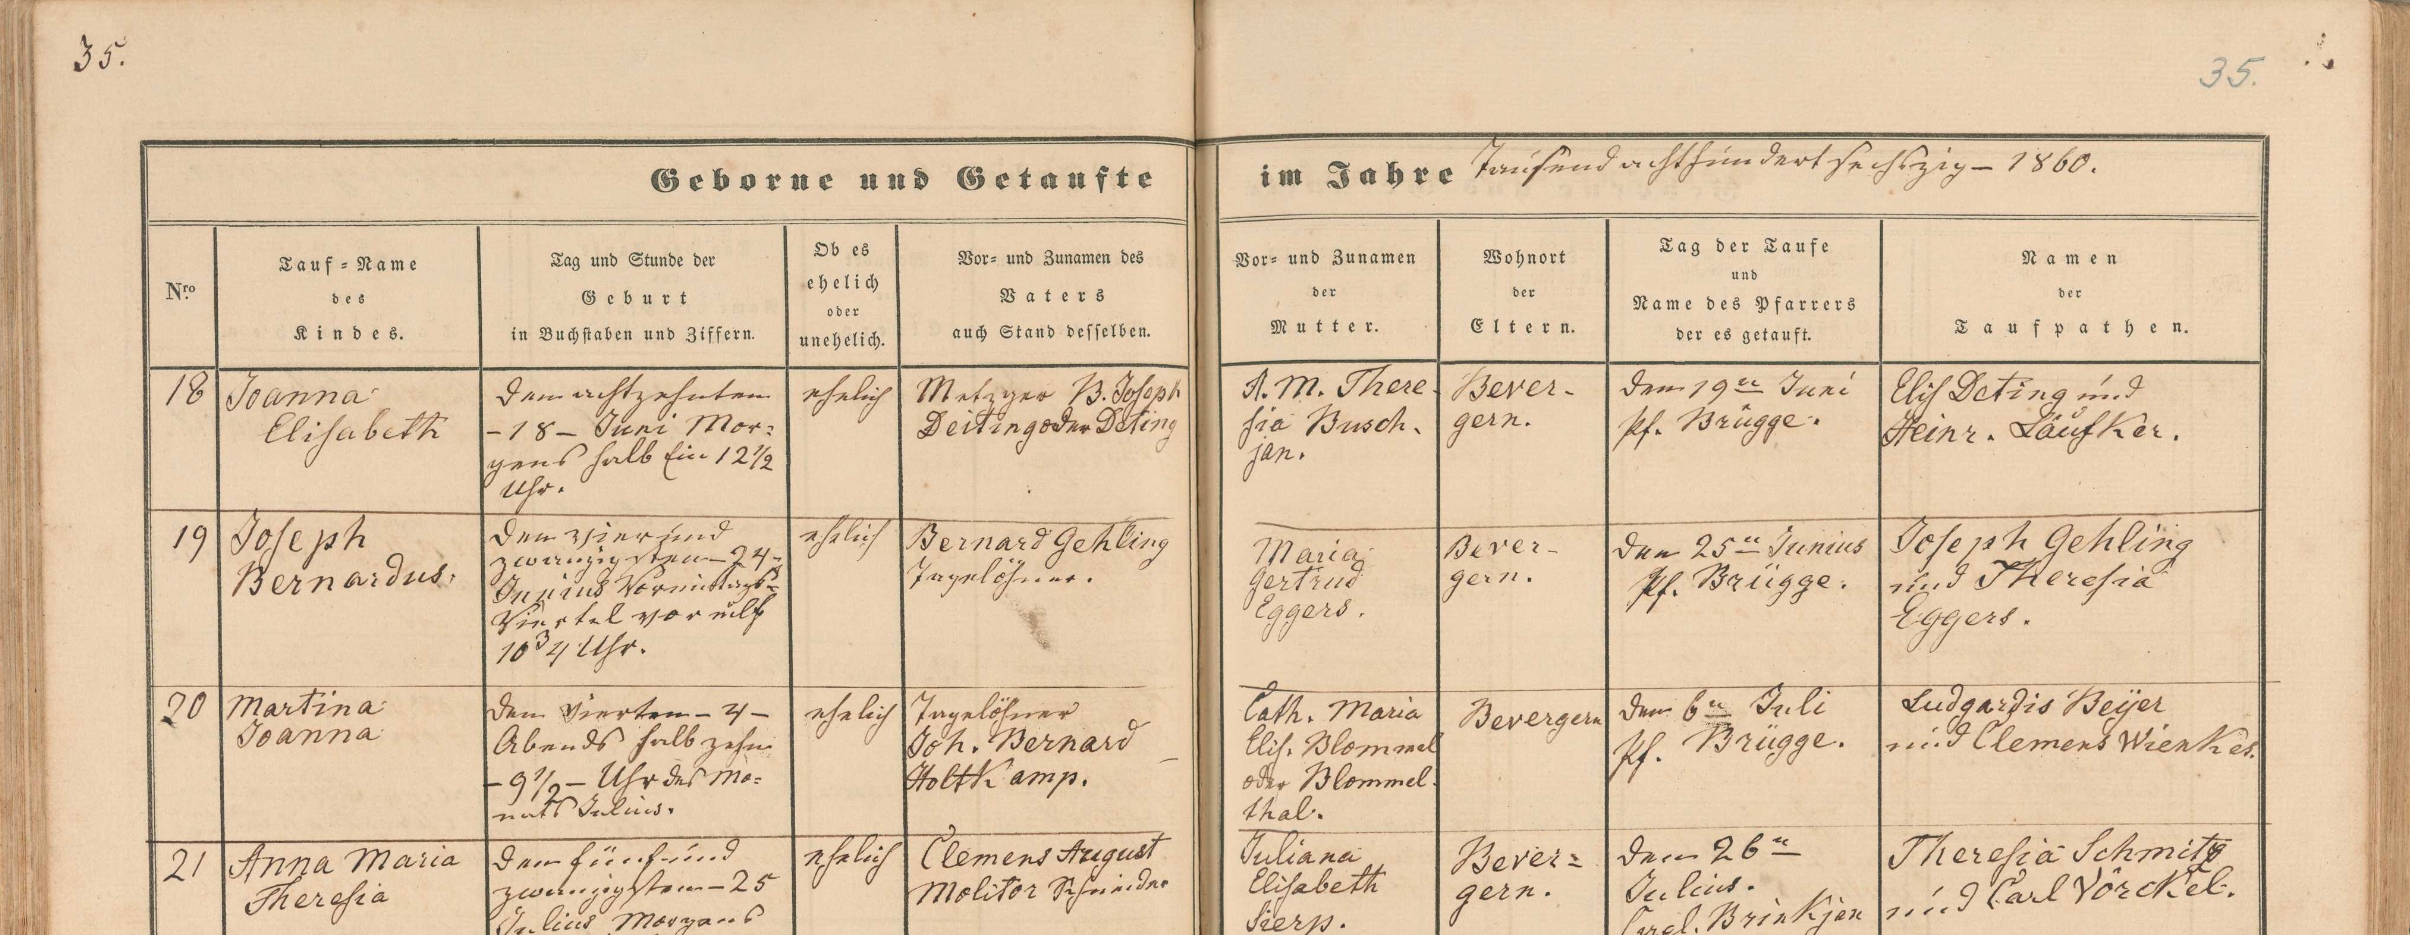 35.
35.
Geborne und Getaufte im Jahre Tausend achthundert sechszig – 1860.
Nro
Tauf-Name
des
Kindes.
Tag und Stunde der
Geburt
in Buchstaben und Ziffern.
Ob es
ehelich
oder
unehelich.
Vor- und Zunamen des
Vaters
auch Stand desselben.
Vor- und Zunamen
der
Mutter.
Wohnort
der
Eltern.
Tag der Taufe
und
Name des Pfarrers
der es getauft.
Namen
der
Taufpathen.
18
Joanna
Elisabeth
Den achtzehnten
– 18 – Juni Mor-
gens halb Ein 12 1/2
Uhr.
ehelich
Metzger B. Joseph
Deiting oder Deting
A. M. There-
sia Busch-
jan.
Bever-
gern.
Den 19n Juni
Pf. Brügge.
Elis Deting und
Heinr. Laufker.
19
Joseph
Bernardus.
Den vier und
zwanzigsten – 24 –
Junius Vormittags
Viertel vor eilf
10 3/4 Uhr.
ehelich
Bernard Gehling
Tagelöhner.
Maria
Gertrud
Eggers.
Bever-
gern.
Den 25n Junius
Pf. Brügge.
Joseph Gehling
und Theresia
Eggers.
20
Martina
Joanna
Den vierten – 4 –
Abends halb zehn
– 9 1/2 – Uhr des Mo-
nats Julius.
ehelich
Tagelöhner
Joh. Bernard
Holtkamp.
Cath. Maria
Elis. Blommel
oder Blommel-
thal.
Bevergern
Den 6n Juli
Pf. Brügge.
Ludgardis Beijer
und Clemens Wienkes.
21
Anna Maria
Theresia
Den fünf und
zwanzigsten – 25
Julius Morgens
ehelich
Clemens August
Molitor Schneider
Juliana
Elisabeth
Sierp.
Bever-
gern.
Den 26n
Julius.
Brinkjan
Theresia Schmitz
und Carl Vörckel.